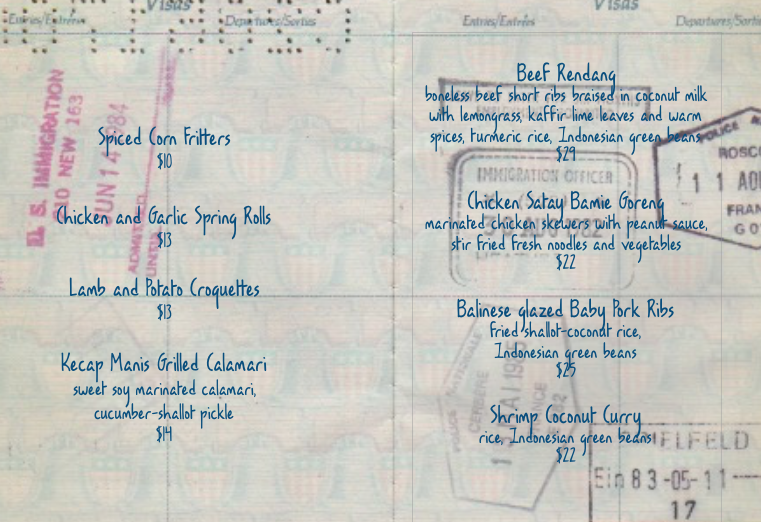 Visas
Entries/Entrées
Departures/Sorties
U. S. IMMIGRATION
NEW 163
JUN 14 1984
ADMITTED
UNTIL
Spiced Corn Fritters
$10
Chicken and Garlic Spring Rolls
$13
Lamb and Potato Croquettes
$13
Kecap Manis Grilled Calamari
sweet soy marinated calamari,
cucumber-shallot pickle
$14
Visas
Entries/Entrées
Departures/Sorties
Beef Rendang
boneless beef short ribs braised in coconut milk
with lemongrass, kaffir lime leaves and warm
spices, turmeric rice, Indonesian green beans
$29
IMMIGRATION OFFICER
30 AUG 1982
Chicken Satay Bamie Goreng
marinated chicken skewers with peanut sauce,
stir fried fresh noodles and vegetables
$22
POLICE
ROSC
11
FRAN
Balinese glazed Baby Pork Ribs
fried shallot-coconut rice,
Indonesian green beans
$25
Shrimp Coconut Curry
rice, Indonesian green beans
$22
CERBERE
FRANCE
IELFELD
Ein 83-05-11
17